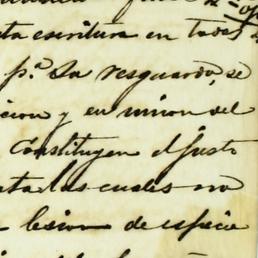 ta escritura en todas
p.ª Su resguardo, se
cion y en union del
Constituyen el justo
ta las cuales no
lesion de especie